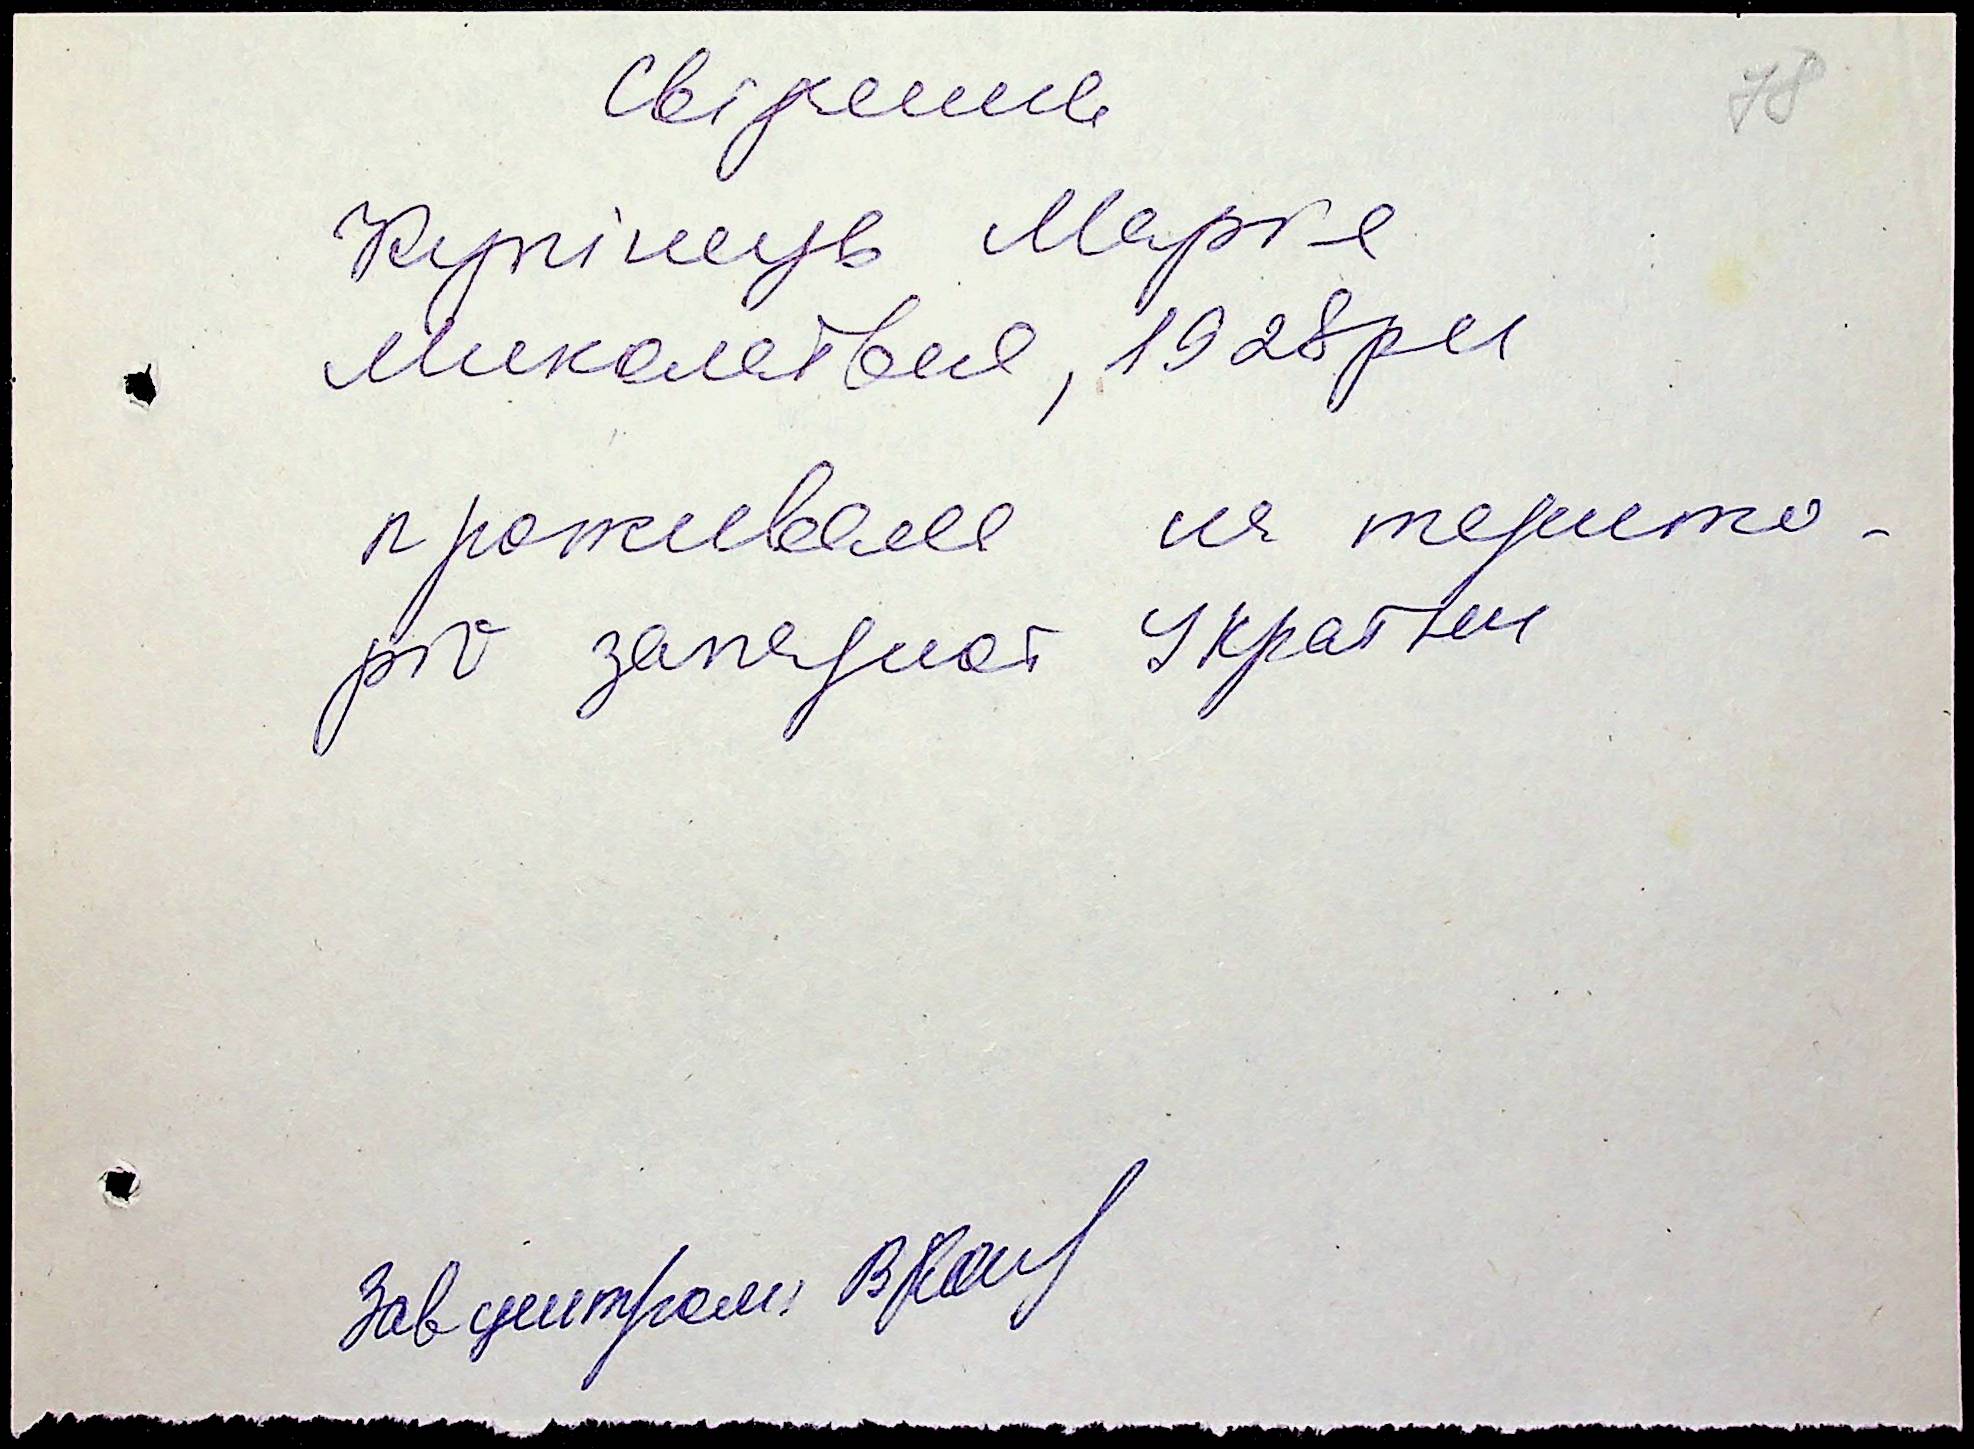 78
Свідчення
Купінець Марія
Миколаївна, 1928 р н
проживала на терито-
рії західної України
Зав центром: